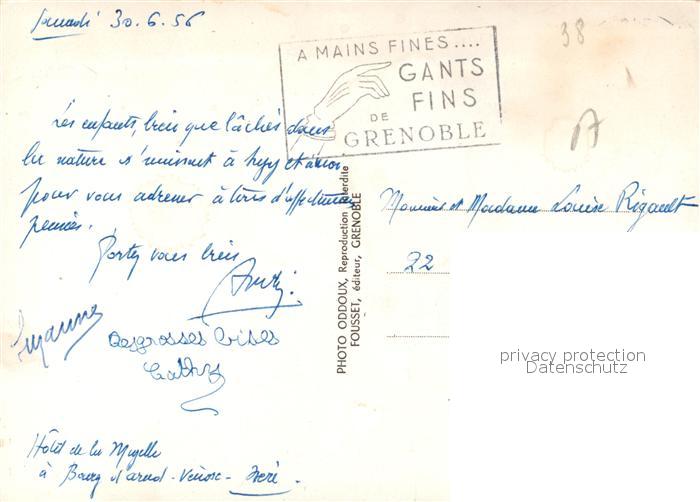 Samedi 30.6.56
A MAINS FINES....
GANTS
FINS
DE
GRENOBLE
38
A
Les enfants, bien que lâchés dans
la nature s'unissent à
pour vous adresser à tous d'affectueuses
pensées.
Portez vous bien
Suzanne
Desgrosses bises
Cathy
Hôtel de la Muzelle
à Bourg d'arud - Venosc - Isère.
PHOTO ODDOUX, Reproduction interdite
FOUSSET, éditeur, GRENOBLE
Monsieur et Madame Louise Rigault
22
privacy protection
Datenschutz